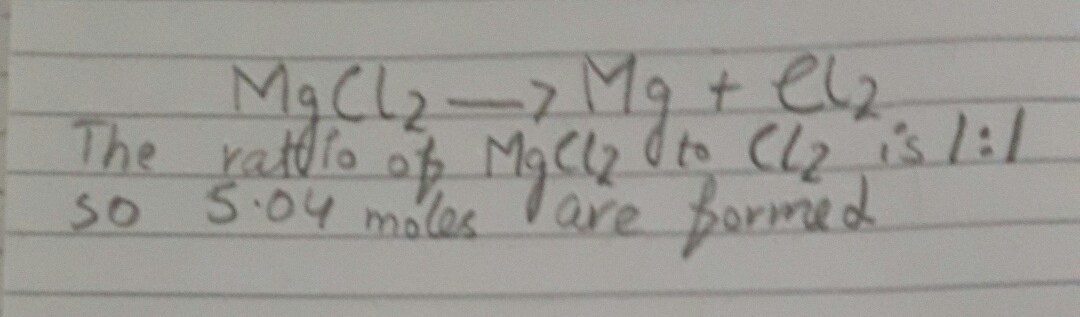 MgCl2 → Mg + Cl2
The ratio of MgCl2 to Cl2 is 1:1
so 5.04 moles are formed